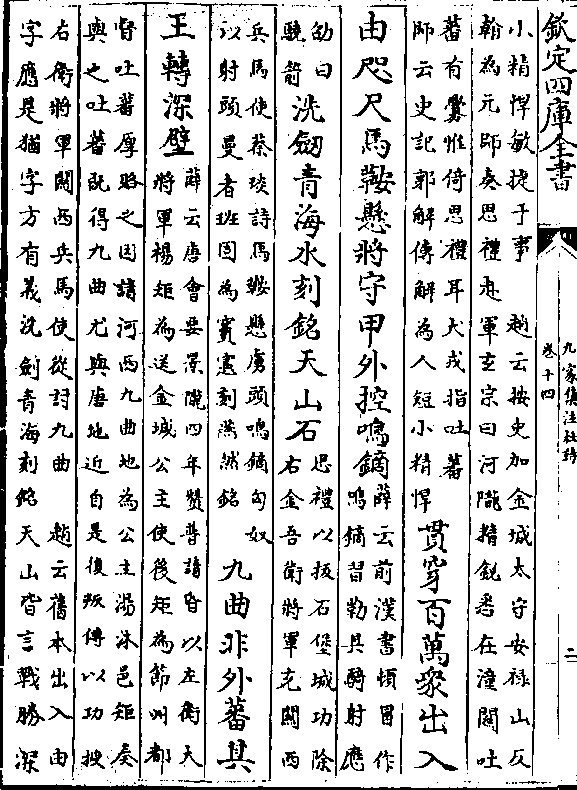 欽定四庫全書
九家集注杜詩
卷十四
二
小精悍敏捷于事　趙云按史加金城太守安禄山反
翰為元師奏思禮赴軍玄宗曰河隴精鋭悉在潼關吐
蕃有釁惟倚思禮耳犬戎指吐蕃
師云史記郭解傳解為人短小精悍
貫穿百萬衆出入
由咫尺馬鞍懸將守甲外控鳴鏑
薛云前漢書頓冒作
鳴鏑習勒其騎射應
劭曰
驍箭
洗劔青海水刻銘天山石
思禮以拔石堡城功除
右金吾衛將軍充關西
兵馬使蔡琰詩馬鞍懸虜頭鳴鏑匈奴
以射頭曼者班固為竇憲刻燕然銘
九曲非外蕃其
王轉深壁
薛云唐會要景隴四年賛普請昏以左衛大
將軍楊矩為送金城公主使後矩為節州都
督吐蕃厚賂之因請河西九曲地為公主湯沐邑矩奏
與之吐蕃既得九曲尤與唐地近自是復叛傳以功授
右衛將軍關西兵馬使從討九曲　趙云舊本出入由
字應是猶字方有義洗劍青海刻銘天山皆言戰勝深